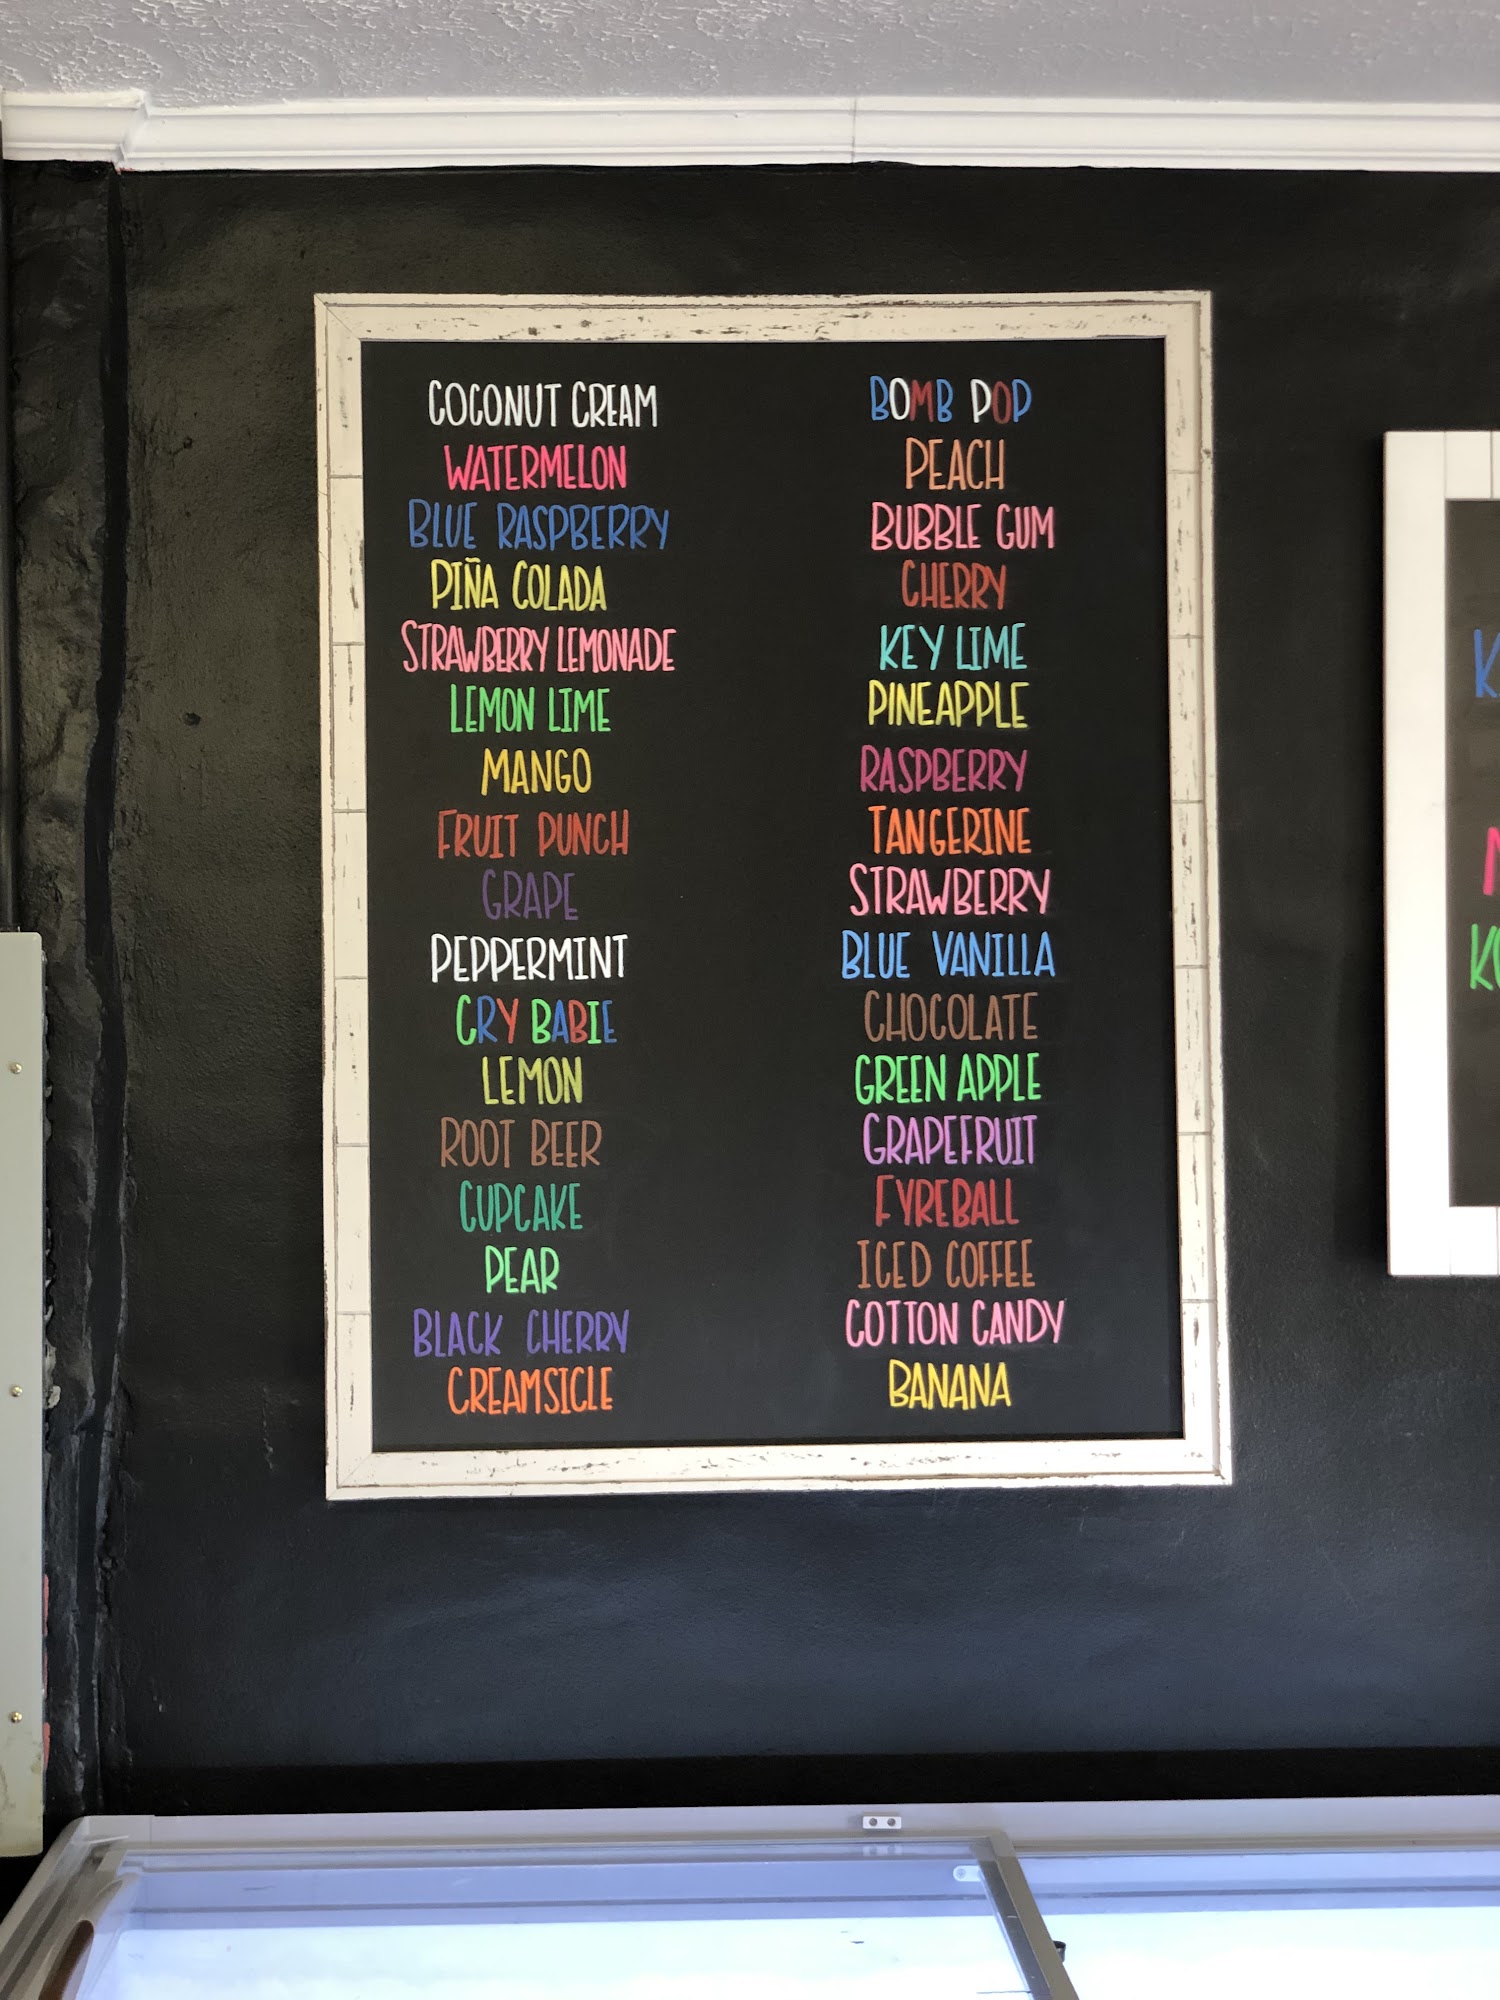 COCONUT CREAM
WATERMELON
BLUE RASPBERRY
PIÑA COLADA
STRAWBERRY LEMONADE
LEMON LIME
MANGO
FRUIT PUNCH
GRAPE
PEPPERMINT
CRY BABIE
LEMON
ROOT BEER
CUPCAKE
PEAR
BLACK CHERRY
CREAMSICLE
BOMB POP
PEACH
BUBBLE GUM
CHERRY
KEY LIME
PINEAPPLE
RASPBERRY
TANGERINE
STRAWBERRY
BLUE VANILLA
CHOCOLATE
GREEN APPLE
GRAPEFRUIT
FYREBALL
ICED COFFEE
COTTON CANDY
BANANA